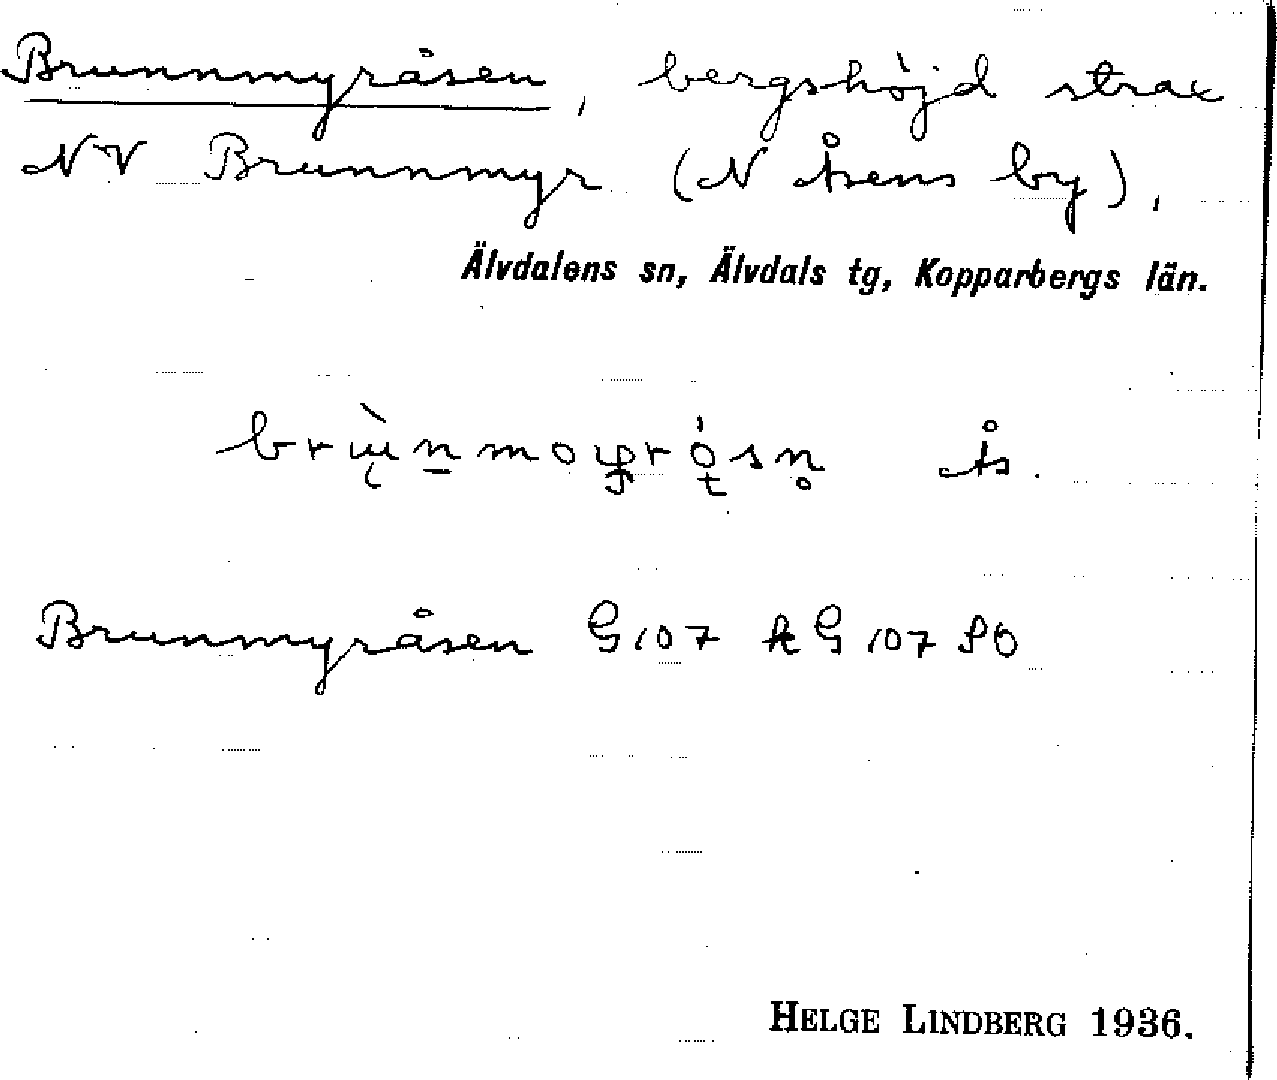 Brunnmyråsen, bergshöjd strax
NV Brunnmyr (N Åsens by),
Älvdalens sn, Älvdals tg, Kopparbergs län.
Ås.
Brunmyråsen G107 k G 107 SO
HELGE LINDBERG 1936.